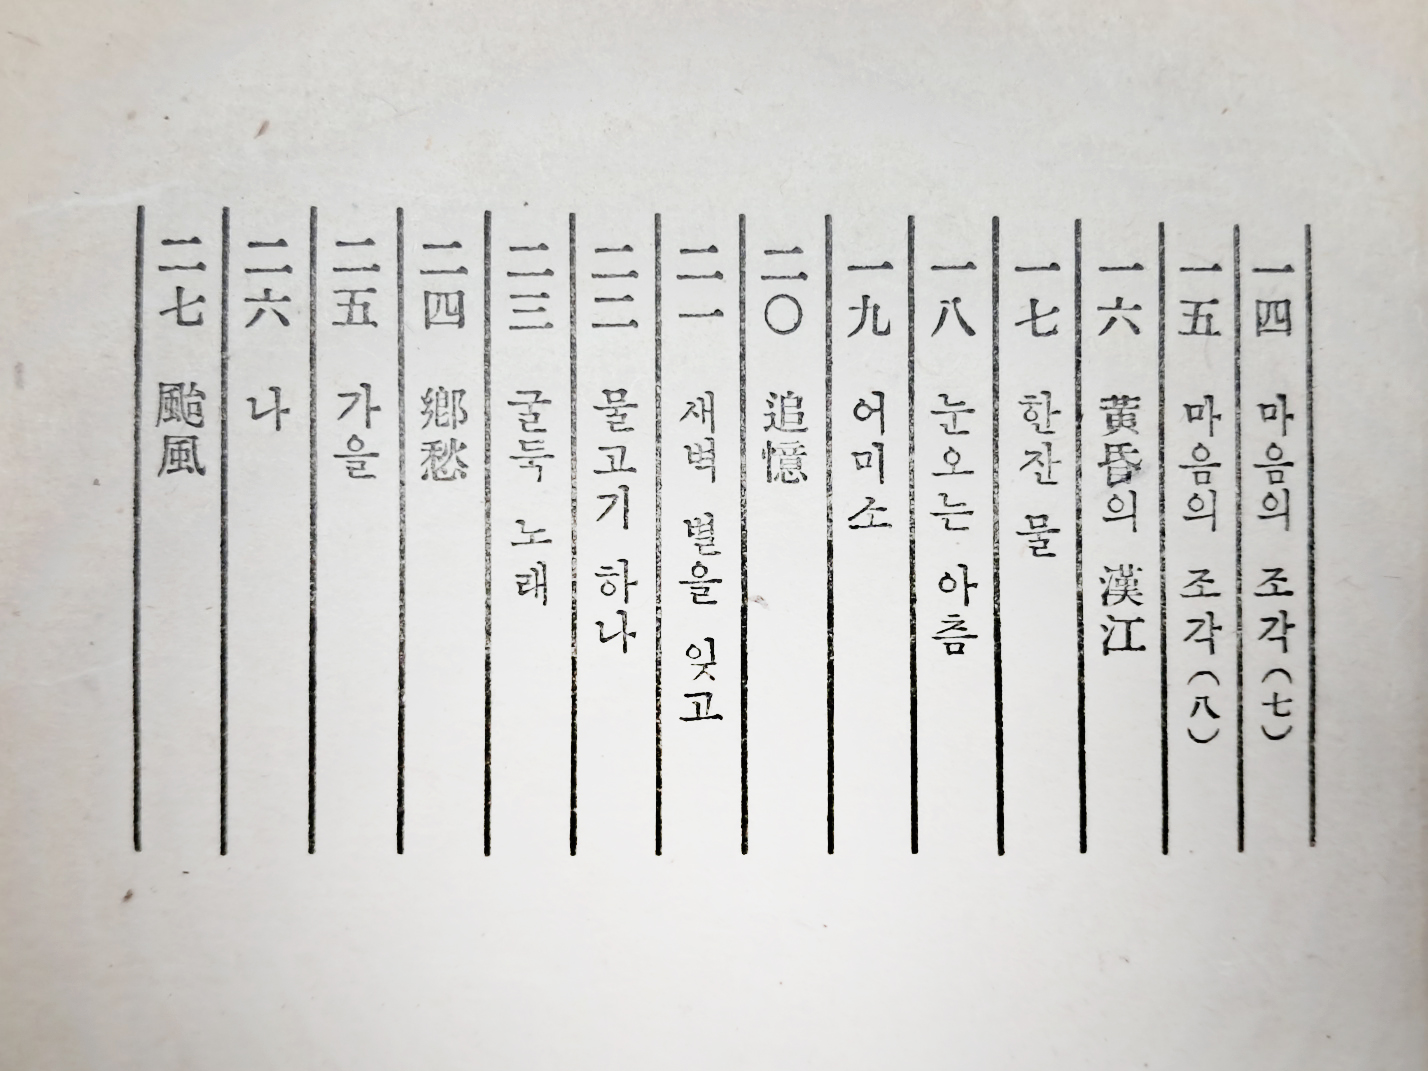 一四 마음의 조각(七)
一五 마음의 조각(八)
一六 黃昏의 漢江
一七 한잔 물
一八 눈오는 아츰
一九 어미소
二〇 追憶
二一 새벽 별을 잊고
二二 물고기 하나
二三 굴둑 노래
二四 鄕愁
二五 가을
二六 나
二七 颱風